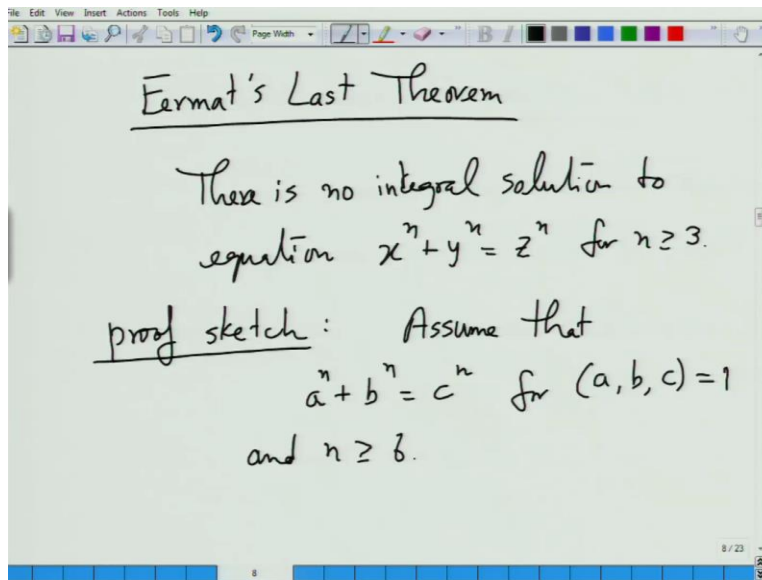 File Edit View Insert Actions Tools Help
Page Width B I
Fermat's Last Theorem
There is no integral solution to
equation xⁿ + yⁿ = zⁿ for n ≥ 3.
proof sketch: Assume that
aⁿ + bⁿ = cⁿ for (a, b, c) = 1
and n ≥ 6.
8 / 23
8